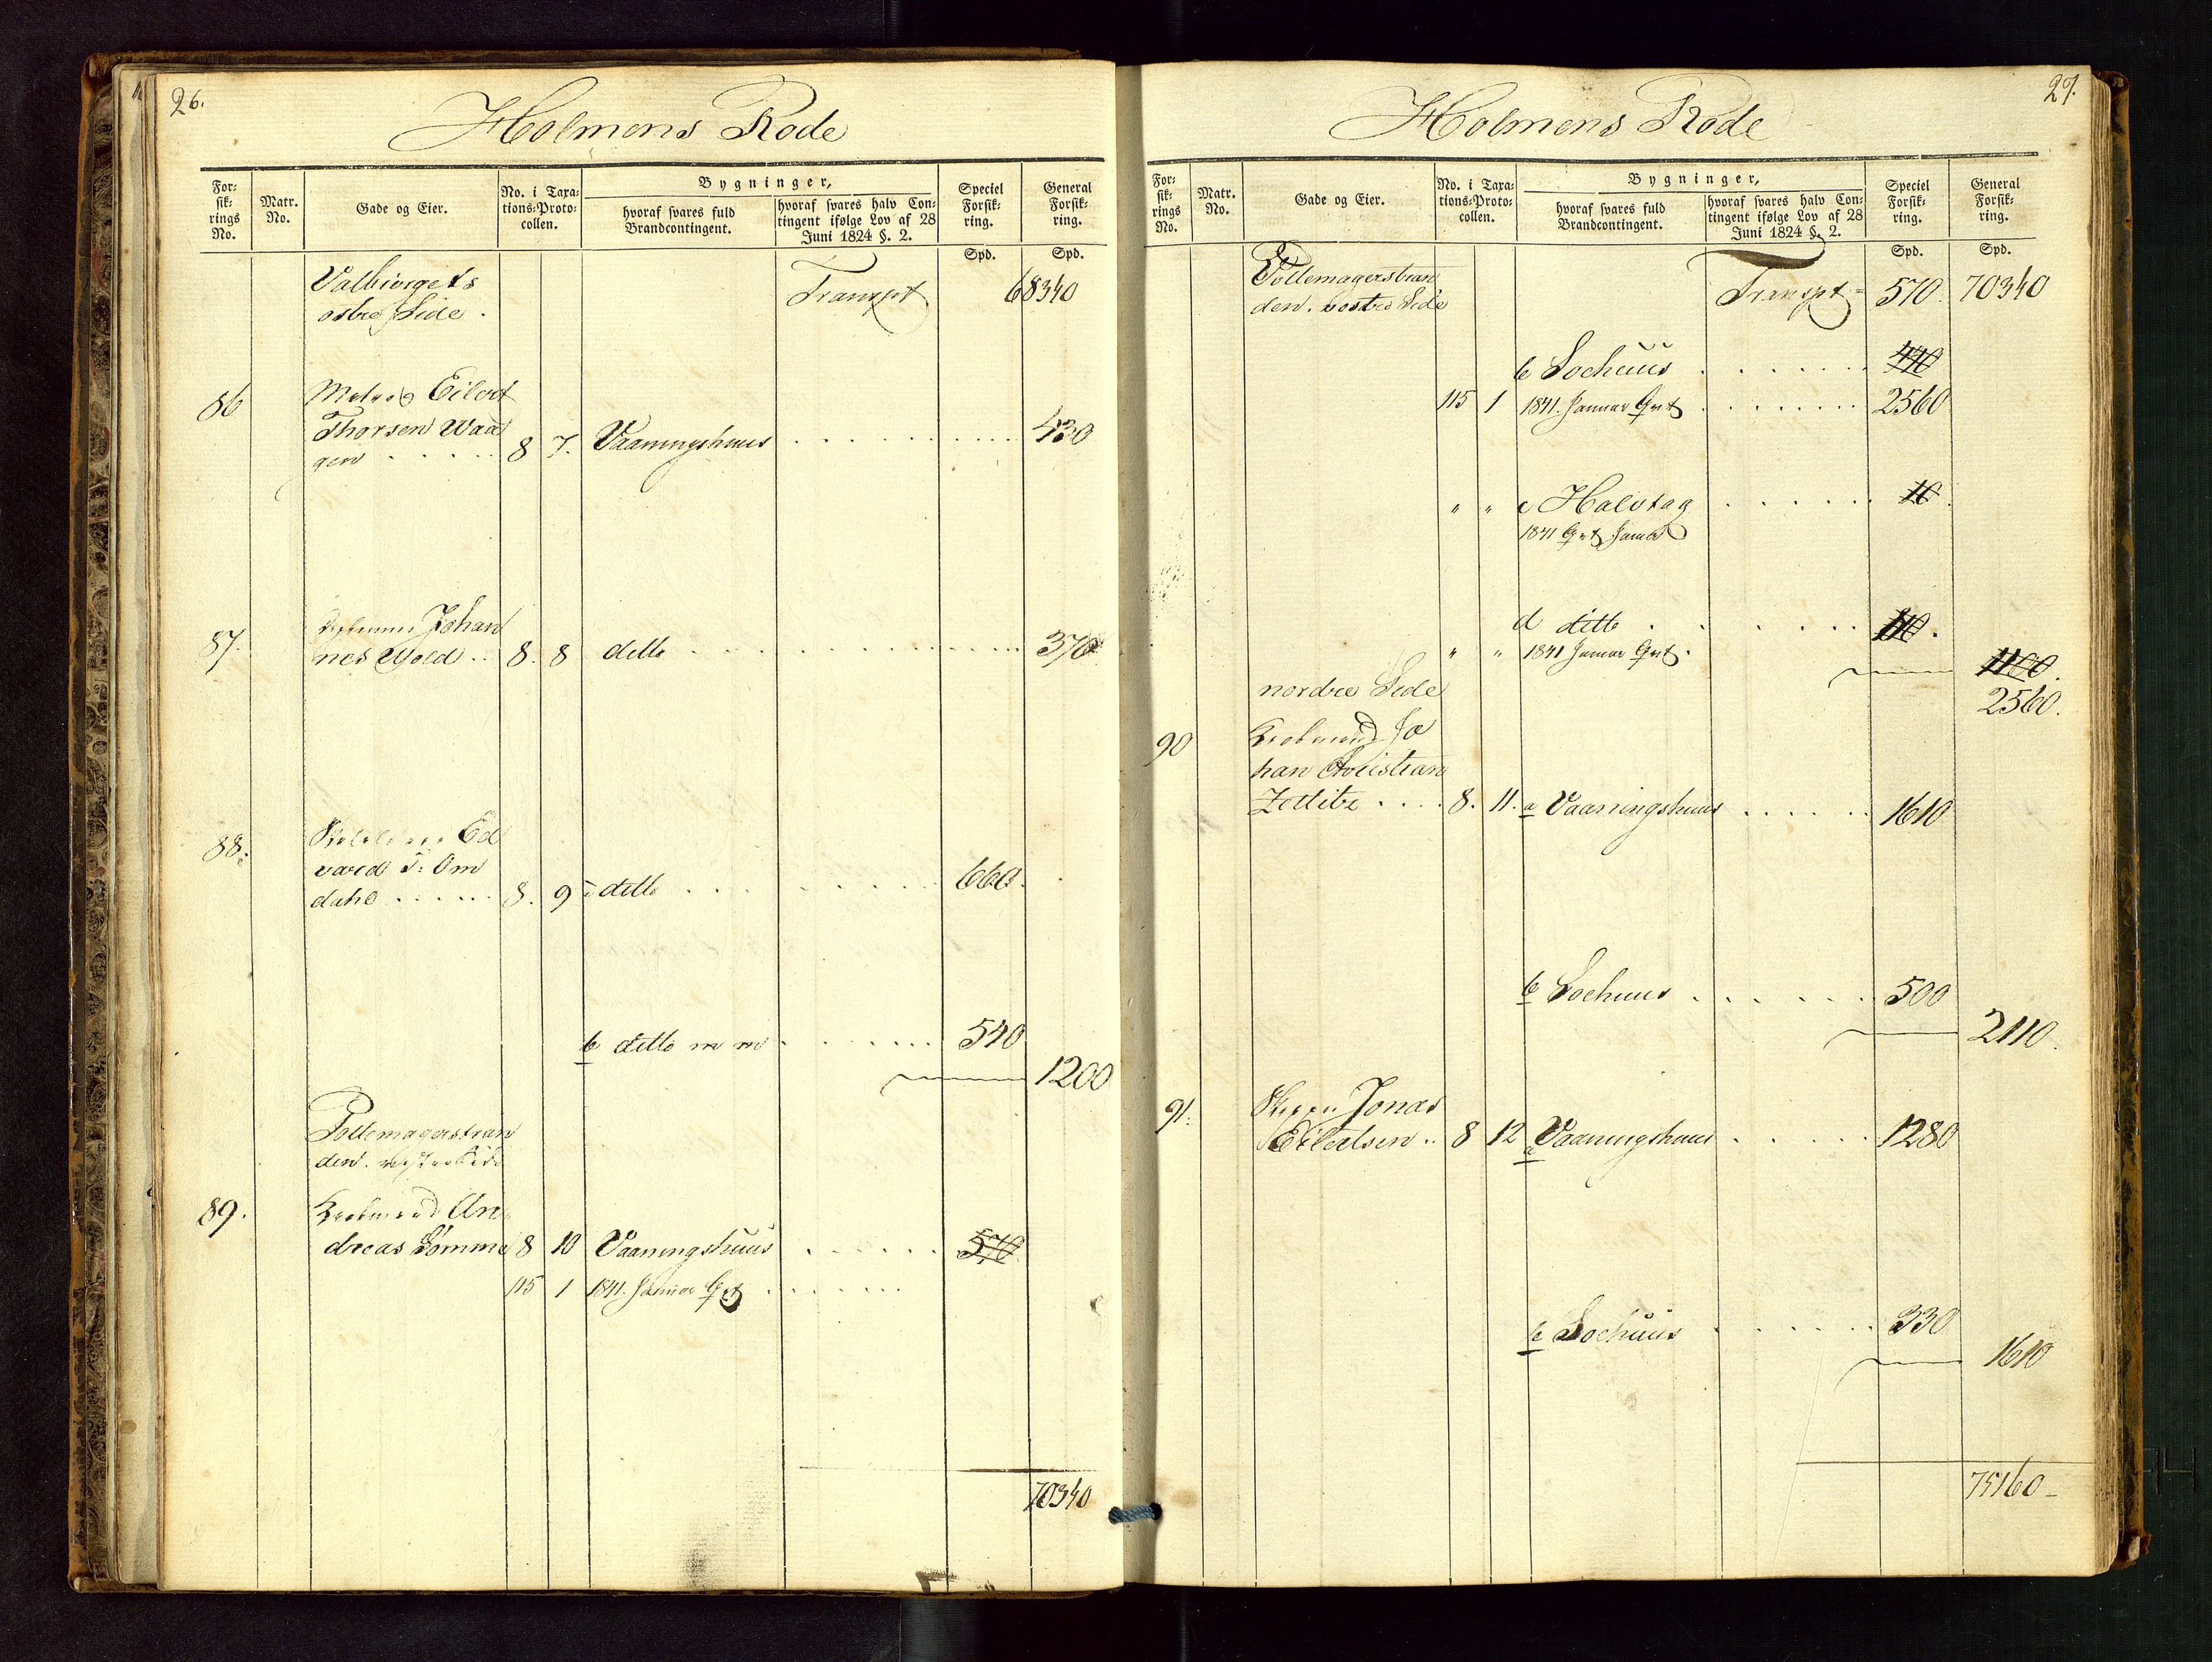 26.
Holmens Rode
For-
sik-
rings
No.
Matr.
No.
Gade og Eier.
No. i Taxa-
tions-Proto-
collen.
Bygninger,
hvoraf svares fuld
Brandcontingent.
hvoraf svares halv Con-
tingent ifølge Lov af 28
Juni 1824 §. 2.
Speciel
Forsik-
ring.
General
Forsik-
ring.
Spd.
Spd.
Valbiergets
østre Side.
Transpt
68340
86
Eilert
Thorsen Waa
gen
8 7. Vaaningshuus
430
87.
Johan
nes Wold
8. 8 ditto
370
88.
Ed
vard T. Om
dahl
8. 9 ditto
660.
b ditto m m
540
1200
Pottemagerstran
den. vestre Side
89.
Kiøbmand An
dreas Sømme 8 10 Vaaningshuus
570
115 1 1841. Januar Qvt
70340
27.
Holmens Rode
For-
sik-
rings
No.
Matr.
No.
Gade og Eier.
No. i Taxa-
tions-Proto-
collen.
Bygninger,
hvoraf svares fuld
Brandcontingent.
hvoraf svares halv Con-
tingent ifølge Lov af 28
Juni 1824 §. 2.
Speciel
Forsik-
ring.
General
Forsik-
ring.
Spd.
Spd.
Pottemagerstran
den. vestre Side
Transpt
570. 70340
b Søehuus
440
115 1 1841. Januar Qvt
2560
" " c Halvtag
10
1841 Qvt Januar
d ditto
" " 1841 Januar Qvt.
1100.
2560.
nordre Side
90
Kiøbmand Jo
han Christian
Zetlitz 8. 11. a Vaaningshuus
1610
b Søehuus
500
2110.
91.
Skipper Jonas
Eilertsen 8 12 a Vaaningshuus
1280
b Søehuus
330
1610
75160